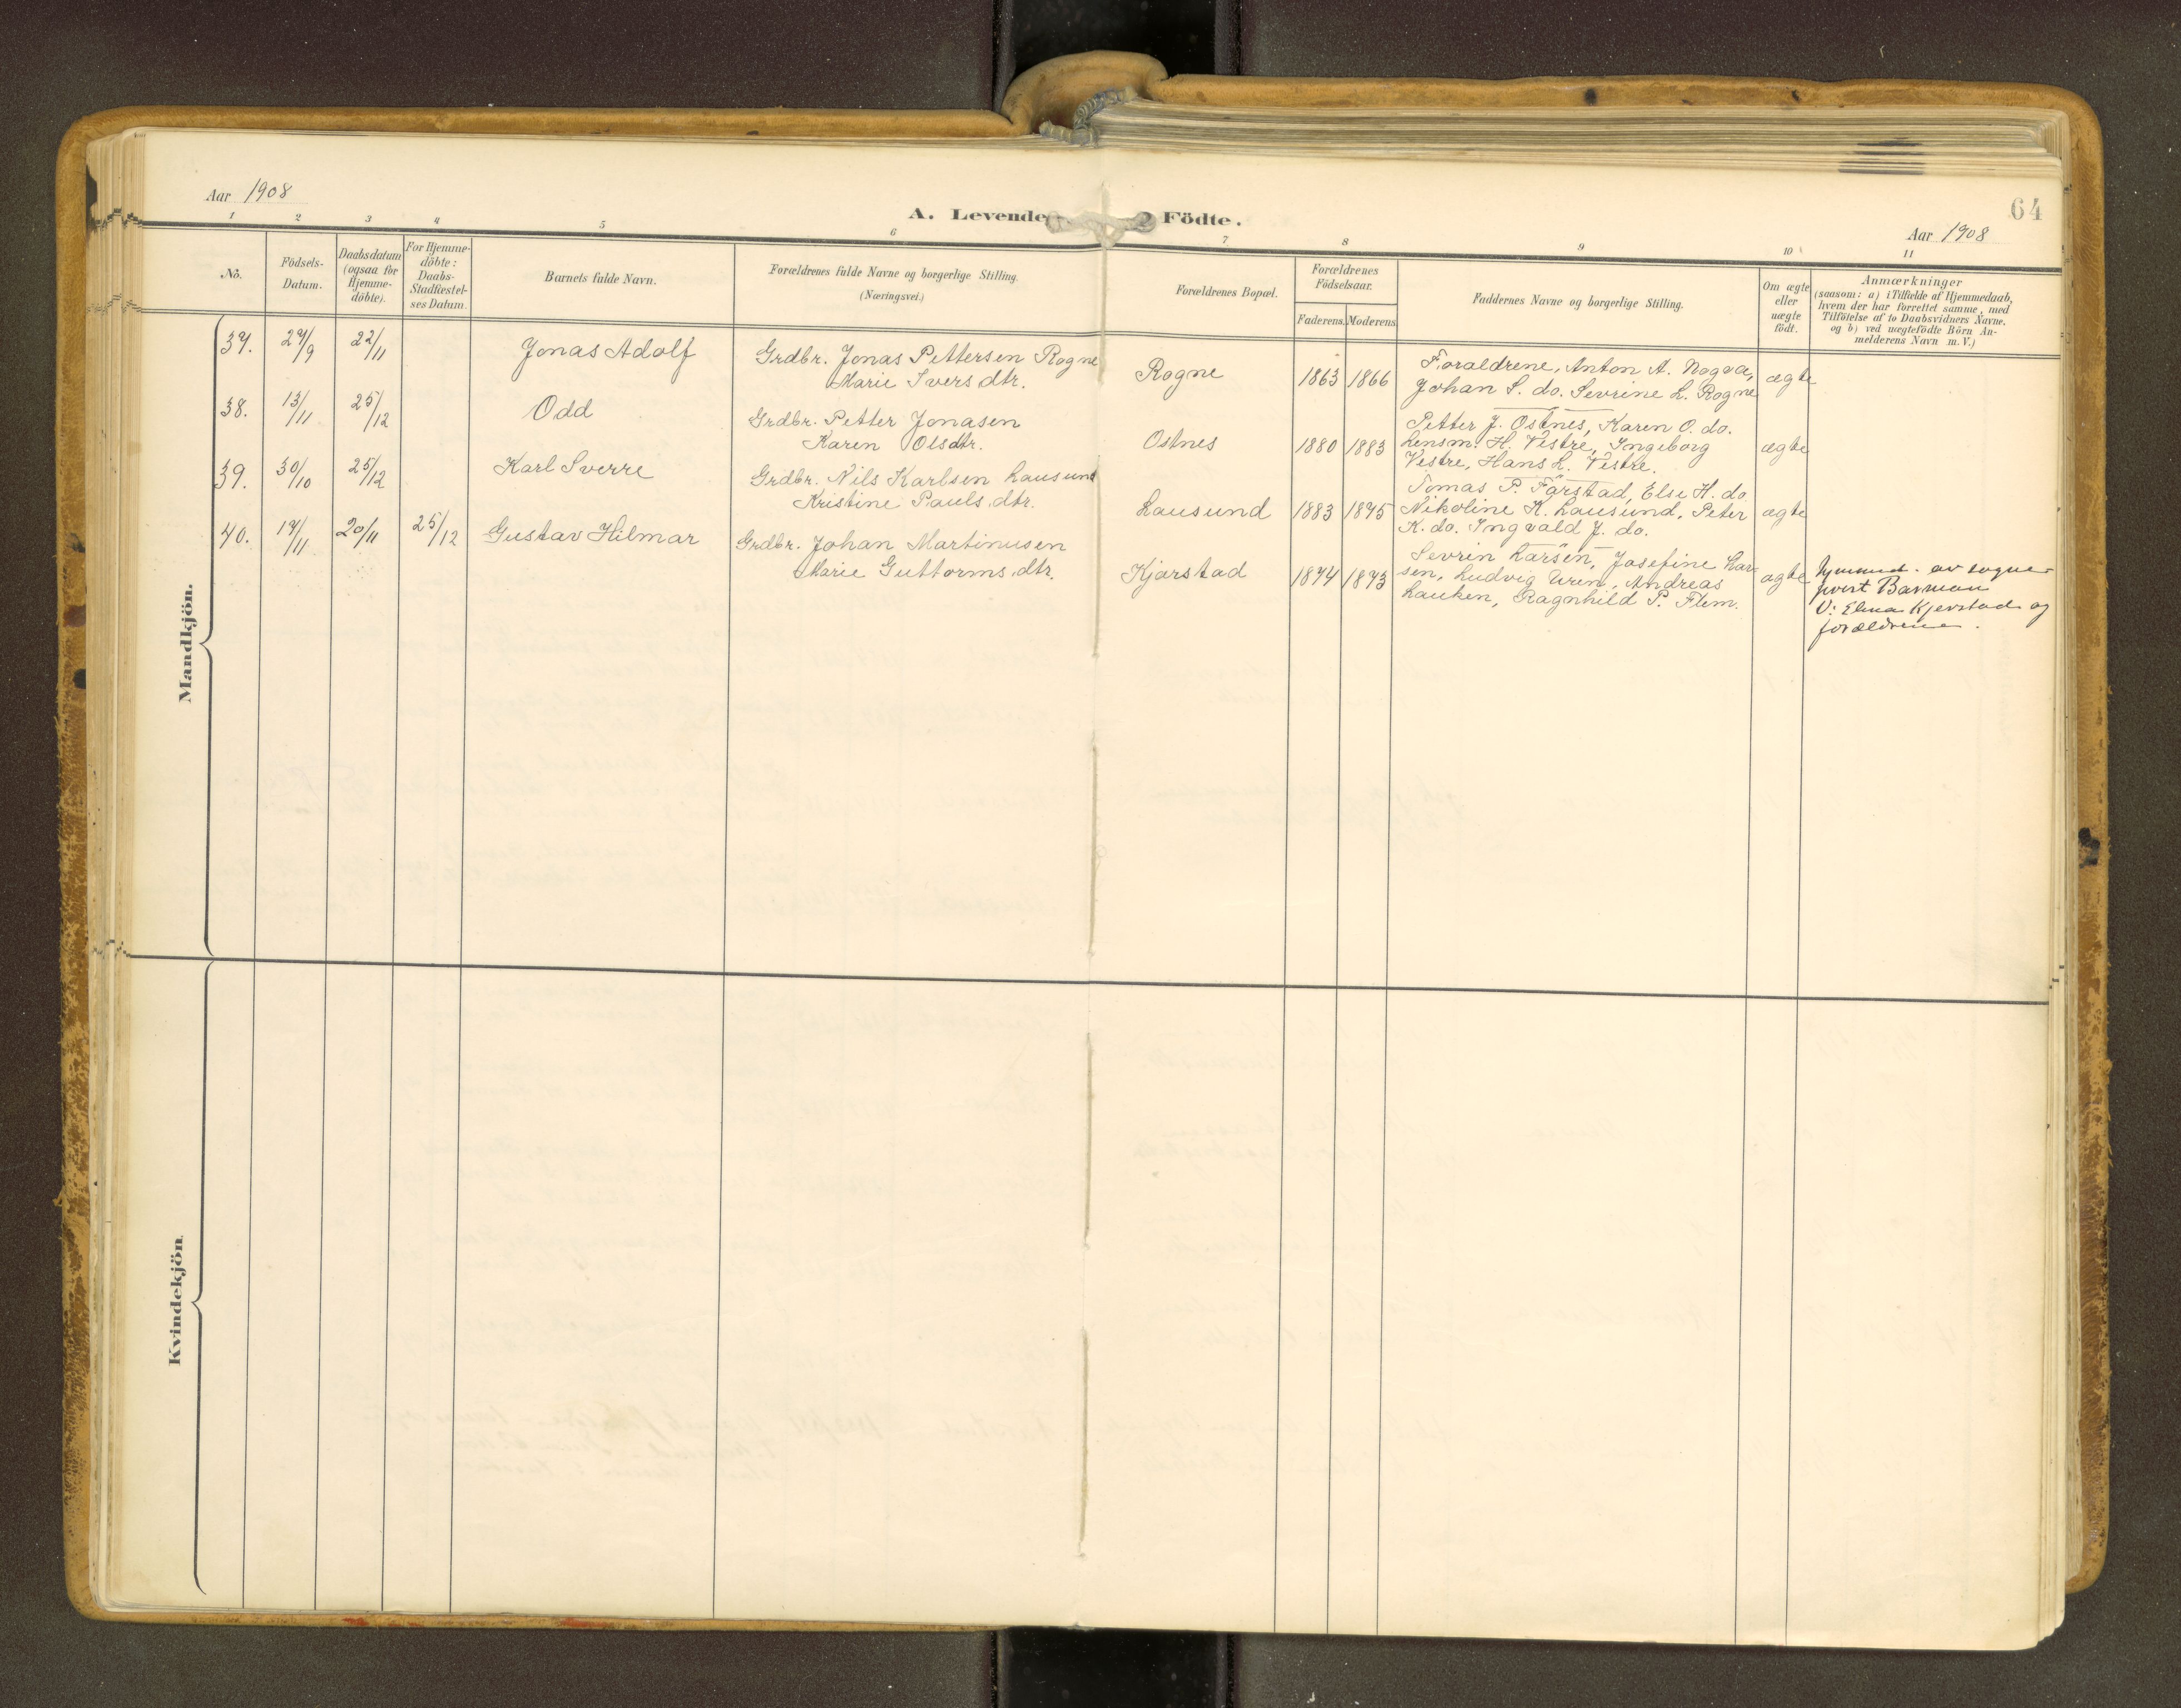 Aar 1908
A. Levende Födte.
64
Aar 1908
1 2 3 4 5 6 7 8 9 10 11
No.
Födsels-
Datum.
Daabsdatum
(ogsaa for
Hjemme-
döbte).
For Hjemme-
döbte:
Daabs-
Stadfæstel-
ses Datum.
Barnets fulde Navn.
Forældrenes fulde Navne og borgerlige Stilling.
(Næringsvei.)
Forældrenes Bopæl.
Forældrenes
Födselsaar.
Faderens. Moderens.
Faddernes Navne og borgerlige Stilling.
Om ægte
eller
uægte
födt.
Anmærkninger
(saasom: a) i Tilfælde af Hjemmedaab,
hvem der har forrettet samme, med
Tilföielse af to Daabsvidners Navne,
og b) ved uægtefödte Börn An-
melderens Navn m. V.)
Mandkjön.
37. 27/9 22/11 Jonas Adolf
Grdbr. Jonas Pettersen Rogne
Marie Ivers dtr.
Rogne 1863 1866
Foraldrene, Anton A. Nogva,
Johan S. do. Sevrine L. Rogne
ægte
38. 13/11 25/12 Odd
Grdbr. Petter Jonasen
Karen Olsdtr.
Ostnes 1880 1883
Petter J. Ostnes, Karen O. do.
Lensm. H. Vestre, Ingeborg
Vestre, Hans L. Vestre.
ægte
39. 30/10 25/12 Karl Sverre
Grdbr. Nils Karlsen Lausund
Kristine Pauls dtr.
Lausund 1883 1875
Tomas P. Färstad, Else H. do
Nikoline K. Lausund, Peter
K. do. Ingvald J. do.
ægte
40. 17/11 20/11 25/12 Gustav Hilmar
Grdbr. Johan Martinusen
Marie Guttorms dtr.
Kjarstad 1874 1873
Sevrin Larsen, Josefine Lar-
sen, Ludvig Uren, Andreas
Lauken, Ragnhild P. Flem.
ægte
av sogne-
prest Barman
V: Elina Kjerstad og
forældrene.
Kvindekjön.